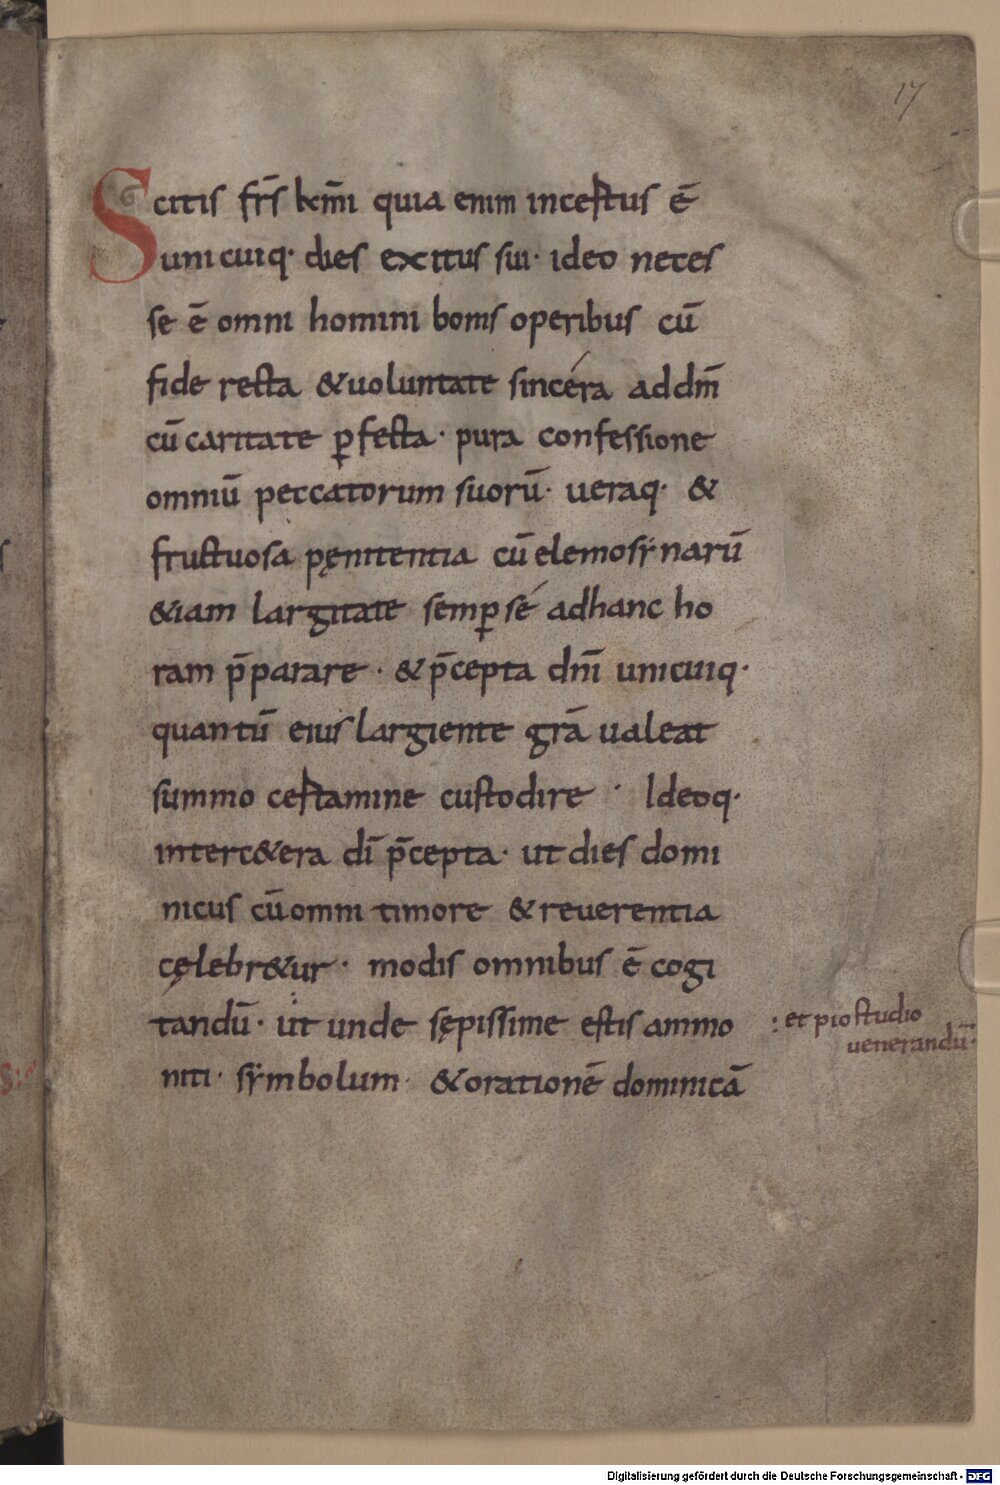 17
Scitis fr̄s km̄i quia enim incestus ē
unicuiq· dies exitus sui· ideo neces
se ē omni homini bonis operibus cū
fide recta &uoluntate sincéra ad dm̄
cū caritate ꝑfecta· pura confessione
omniū peccatorum suorū· ueraq· &
fructuosa pęnitentia cū elemosẏnarū
&iam largitate semꝑ sé adhanc ho
ram p̄parare· & p̄cepta dn̄i unicuiq·
quantū eius largiente grā ualeat
summo cestamine custodire · Ideoq·
interc&era dī p̄cepta· ut dies domi
nicus cū omni timore & reuerentia
cęlebr&ur· modis omnibus ē cogi
tandū· ut unde sępissime estis ammo
: et pio studio
uenerandū·
niti· sẏmbolum· &orationē dominicā
Digitalisierung gefördert durch die Deutsche Forschungsgemeinschaft - DFG